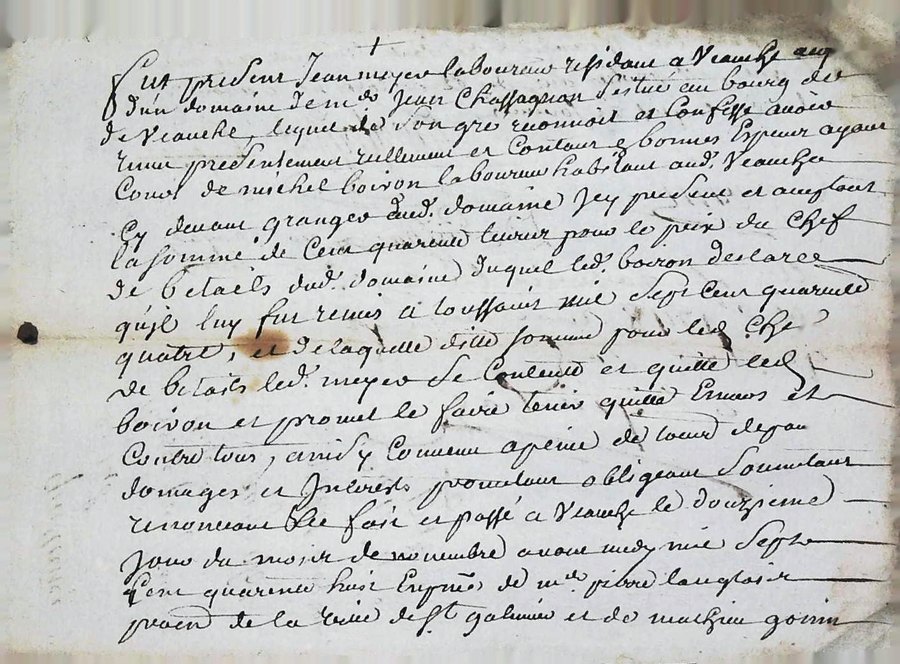 fut present Jean meyer laboureur residant a Veauche au
d'un domaine de mr Jean Chassagnon situé au bourg de
de Veauche, lequel de son gré reconnoit et Confesse avoir
receu presentement reellement et Contant en bonnes Especes ayant
Cours de michel boiron laboureur habitant aud. Veauche
Cy devant granger dud. domaine Icy present et acceptant
la somme de Cent quarente livres pour le prix du Chef
de betails dud. domaine duquel led. boiron declare
qu'il luy fut remis a toussaint mil sept Cent quarente
quatre, et de laquelle ditte somme pour led. Che
de betails led. meyer se Contente et quitte led.
boiron et promet le faire tenir quitte Envers et
Contre tous, ainsy Convenu a peine de tous depans
domages et Interests promettant obligeant soumettant
renonceant &c fait et passé a Veauche le douzieme
Jour du mois de novembre avant midy mil sept
Cent quarente huit En pnce de mre pierre langlois
procn de la ville de St galmier et de mathieu gonin